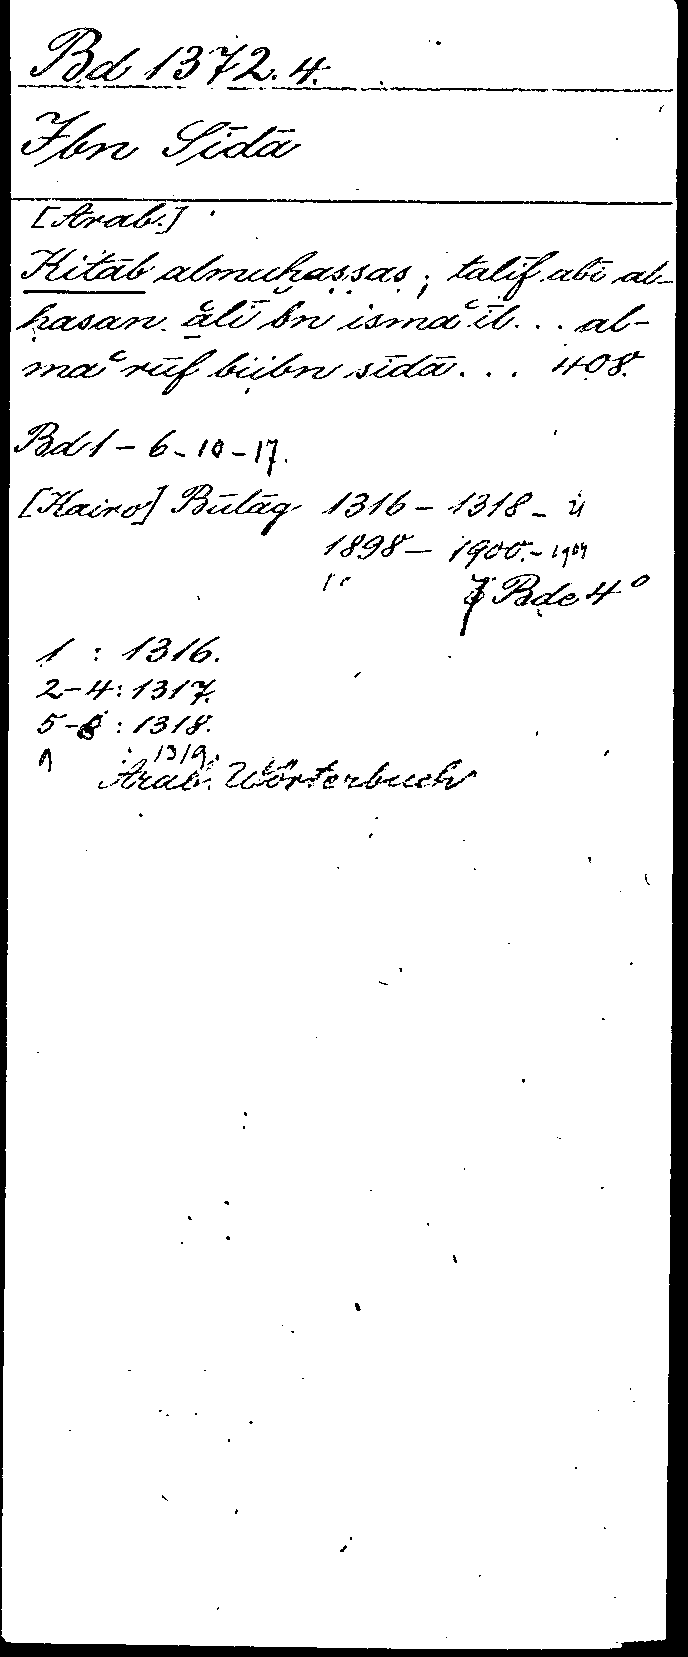 Bd 1372.4.
Ibn Sīdā
[Arab.]
Kitāb almuḫaṣṣaṣ, tālīf abī al-
ḥasan ʿalī bn ismāʿīl... al-
maʿrūf biibn sīdā... 408.
Bd 1-6-10-17.
[Kairo] Būlāq 1316-1318-21
1898-1900.-1904
Bde 4°
1 : 1316.
2-4: 1317.
5-8 : 1318.
9 : 1319.
Arab. Wörterbuch